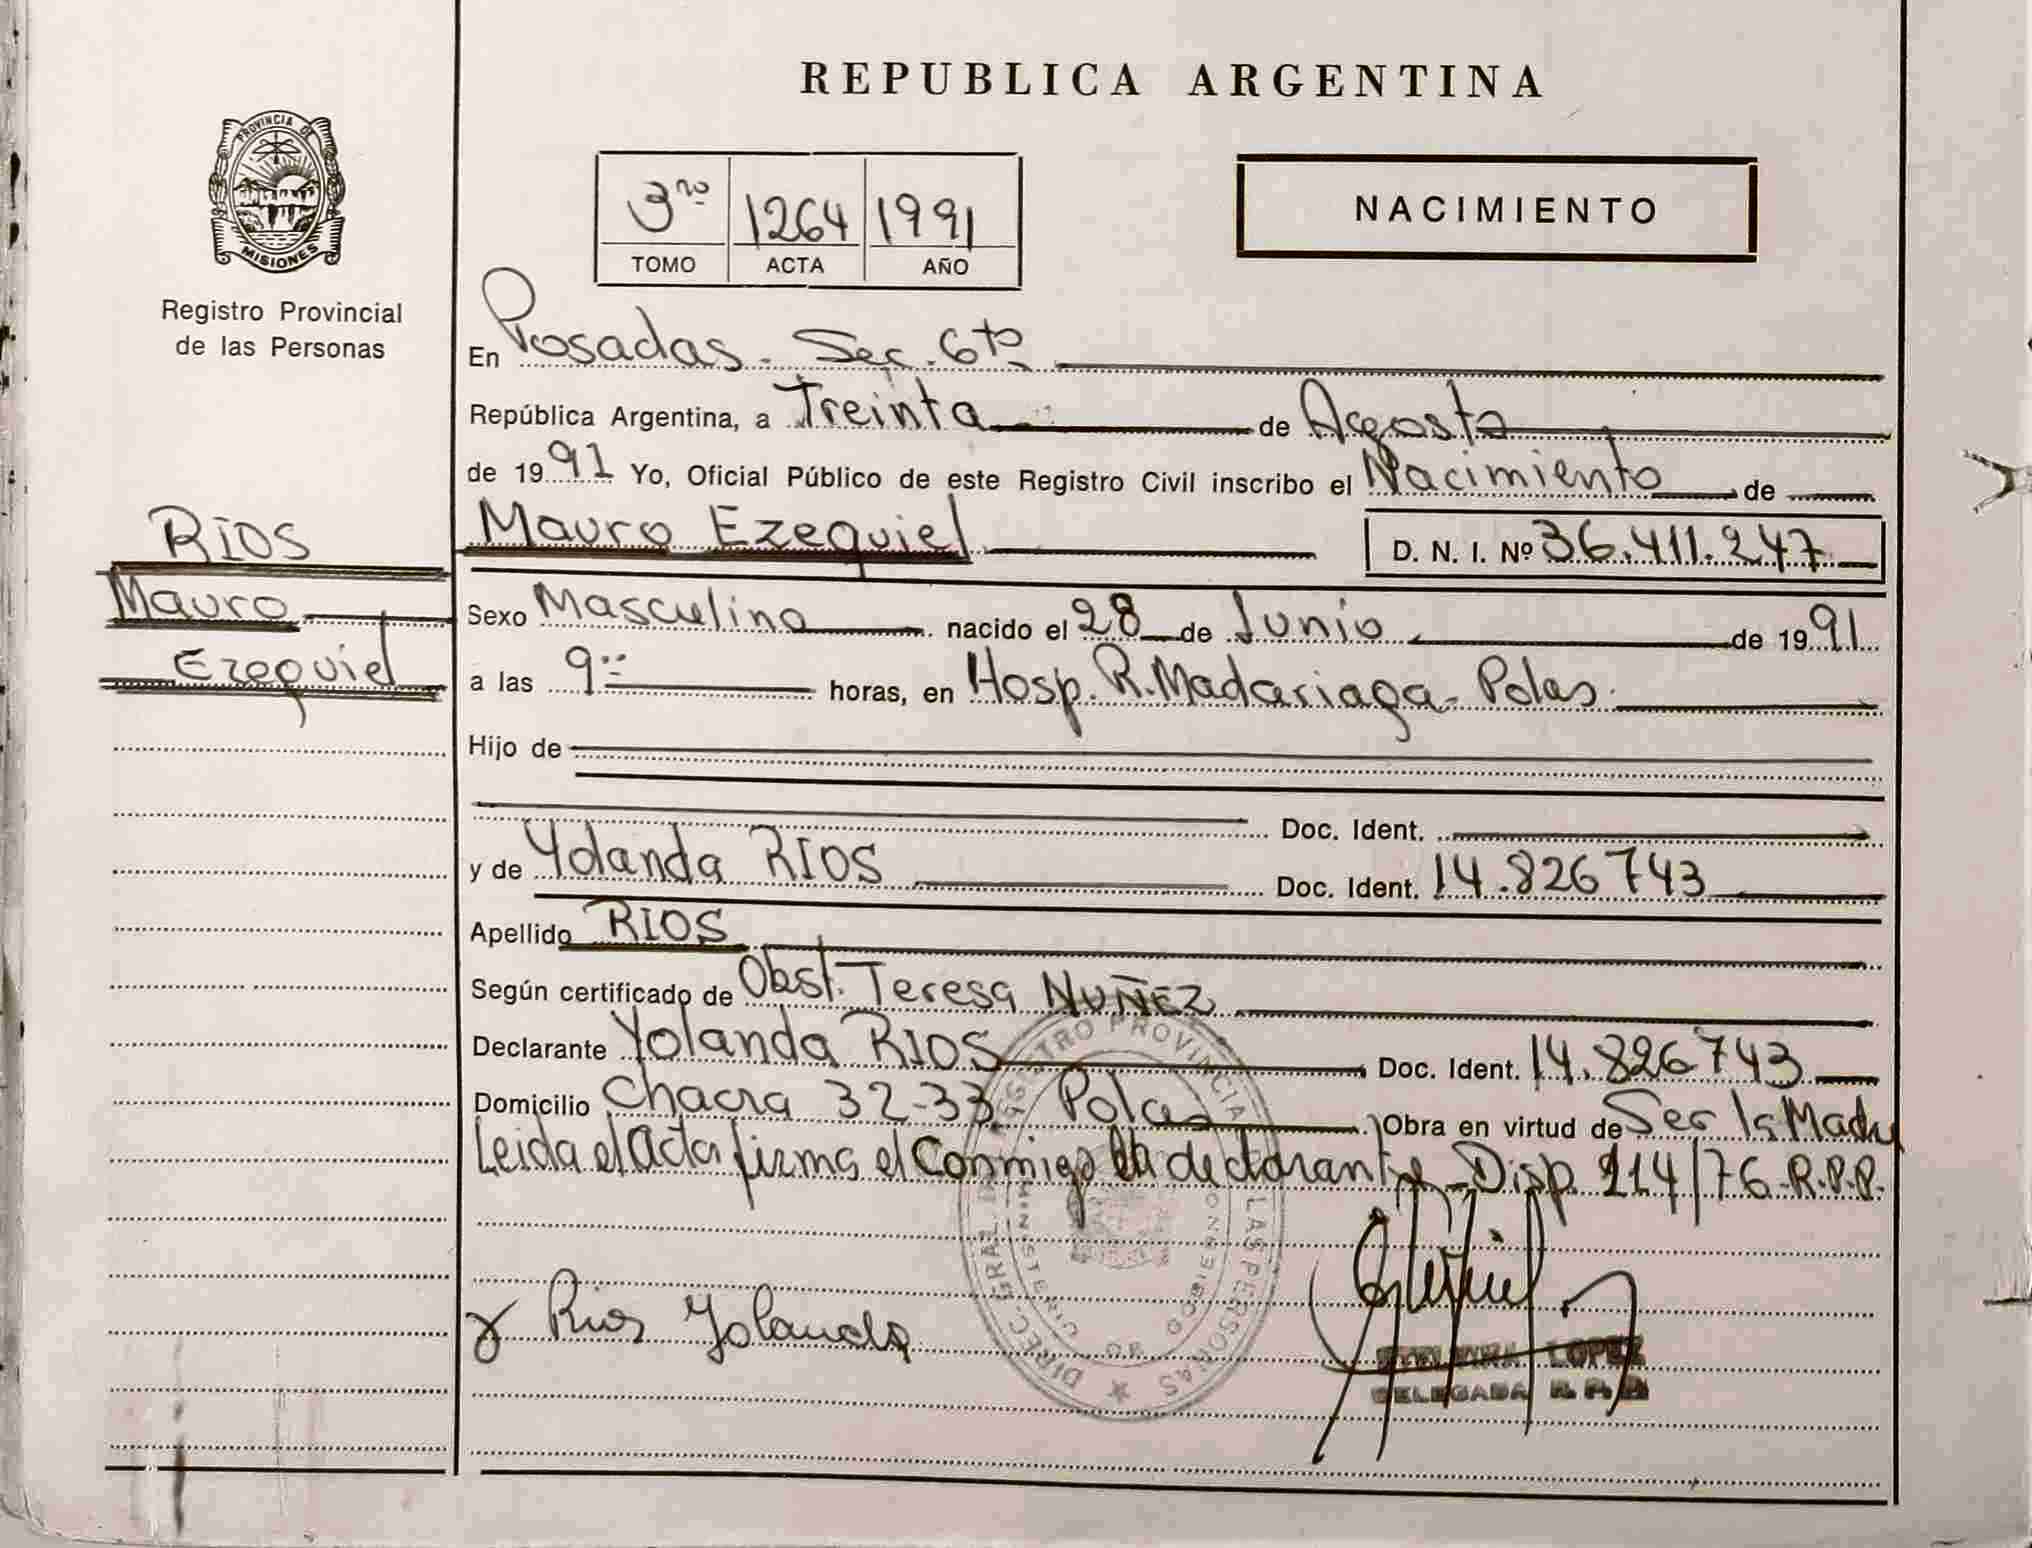 REPUBLICA ARGENTINA
PROVINCIA DE
MISIONES
Registro Provincial
de las Personas
3ro 1264 1991
TOMO ACTA AÑO
NACIMIENTO
En Posadas - Sec. 6ta
República Argentina, a Treinta de Agosto
de 1991 Yo, Oficial Público de este Registro Civil inscribo el Nacimiento de
RIOS
Mauro
Ezequiel
Mauro Ezequiel D. N. I. Nº 36.411.247
Sexo Masculino nacido el 28 de Junio de 1991
a las 9 horas, en Hosp. R. Madariaga - Pdas.
Hijo de
Doc. Ident.
y de Yolanda RIOS Doc. Ident. 14.826743
Apellido RIOS
Según certificado de Obst. Teresa NUÑEZ
Declarante Yolanda RIOS Doc. Ident. 14.826743
Domicilio Chacra 32-33 Pdas Obra en virtud de Ser la Madre
Leida el acta firma el conmigo la declarante - Disp. 214/76-R.P.P.
Rios Yolanda
LOPEZ
DELEGADA R. P. P.
DIREC. GRAL. REGISTRO PROVINCIAL LAS PERSONAS
MINISTERIO DE GOBIERNO